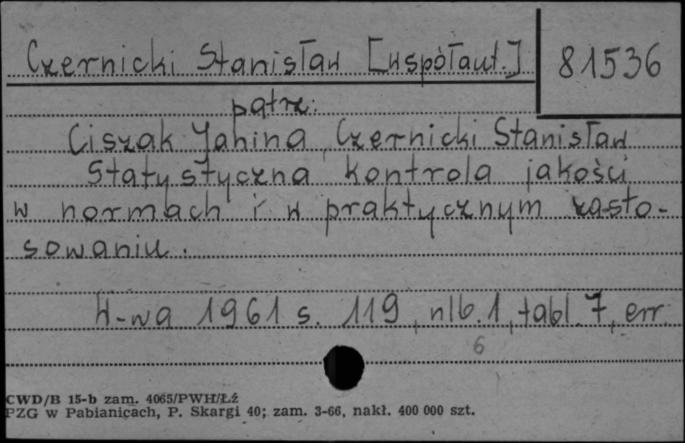 Czernicki Stanisław [współaut.]
81536
patrz:
Ciszak Janina, Czernicki Stanisław
Statystyczna kontrola jakości
w normach i w praktycznym zasto-
sowaniu.
W-wa 1961 s. 119, nlb. 1, tabl. 7, err.
6
CWD/B 15-b zam. 4065/PWH/Łź
PZG w Pabianicach, P. Skargi 40; zam. 3-66, nakł. 400 000 szt.